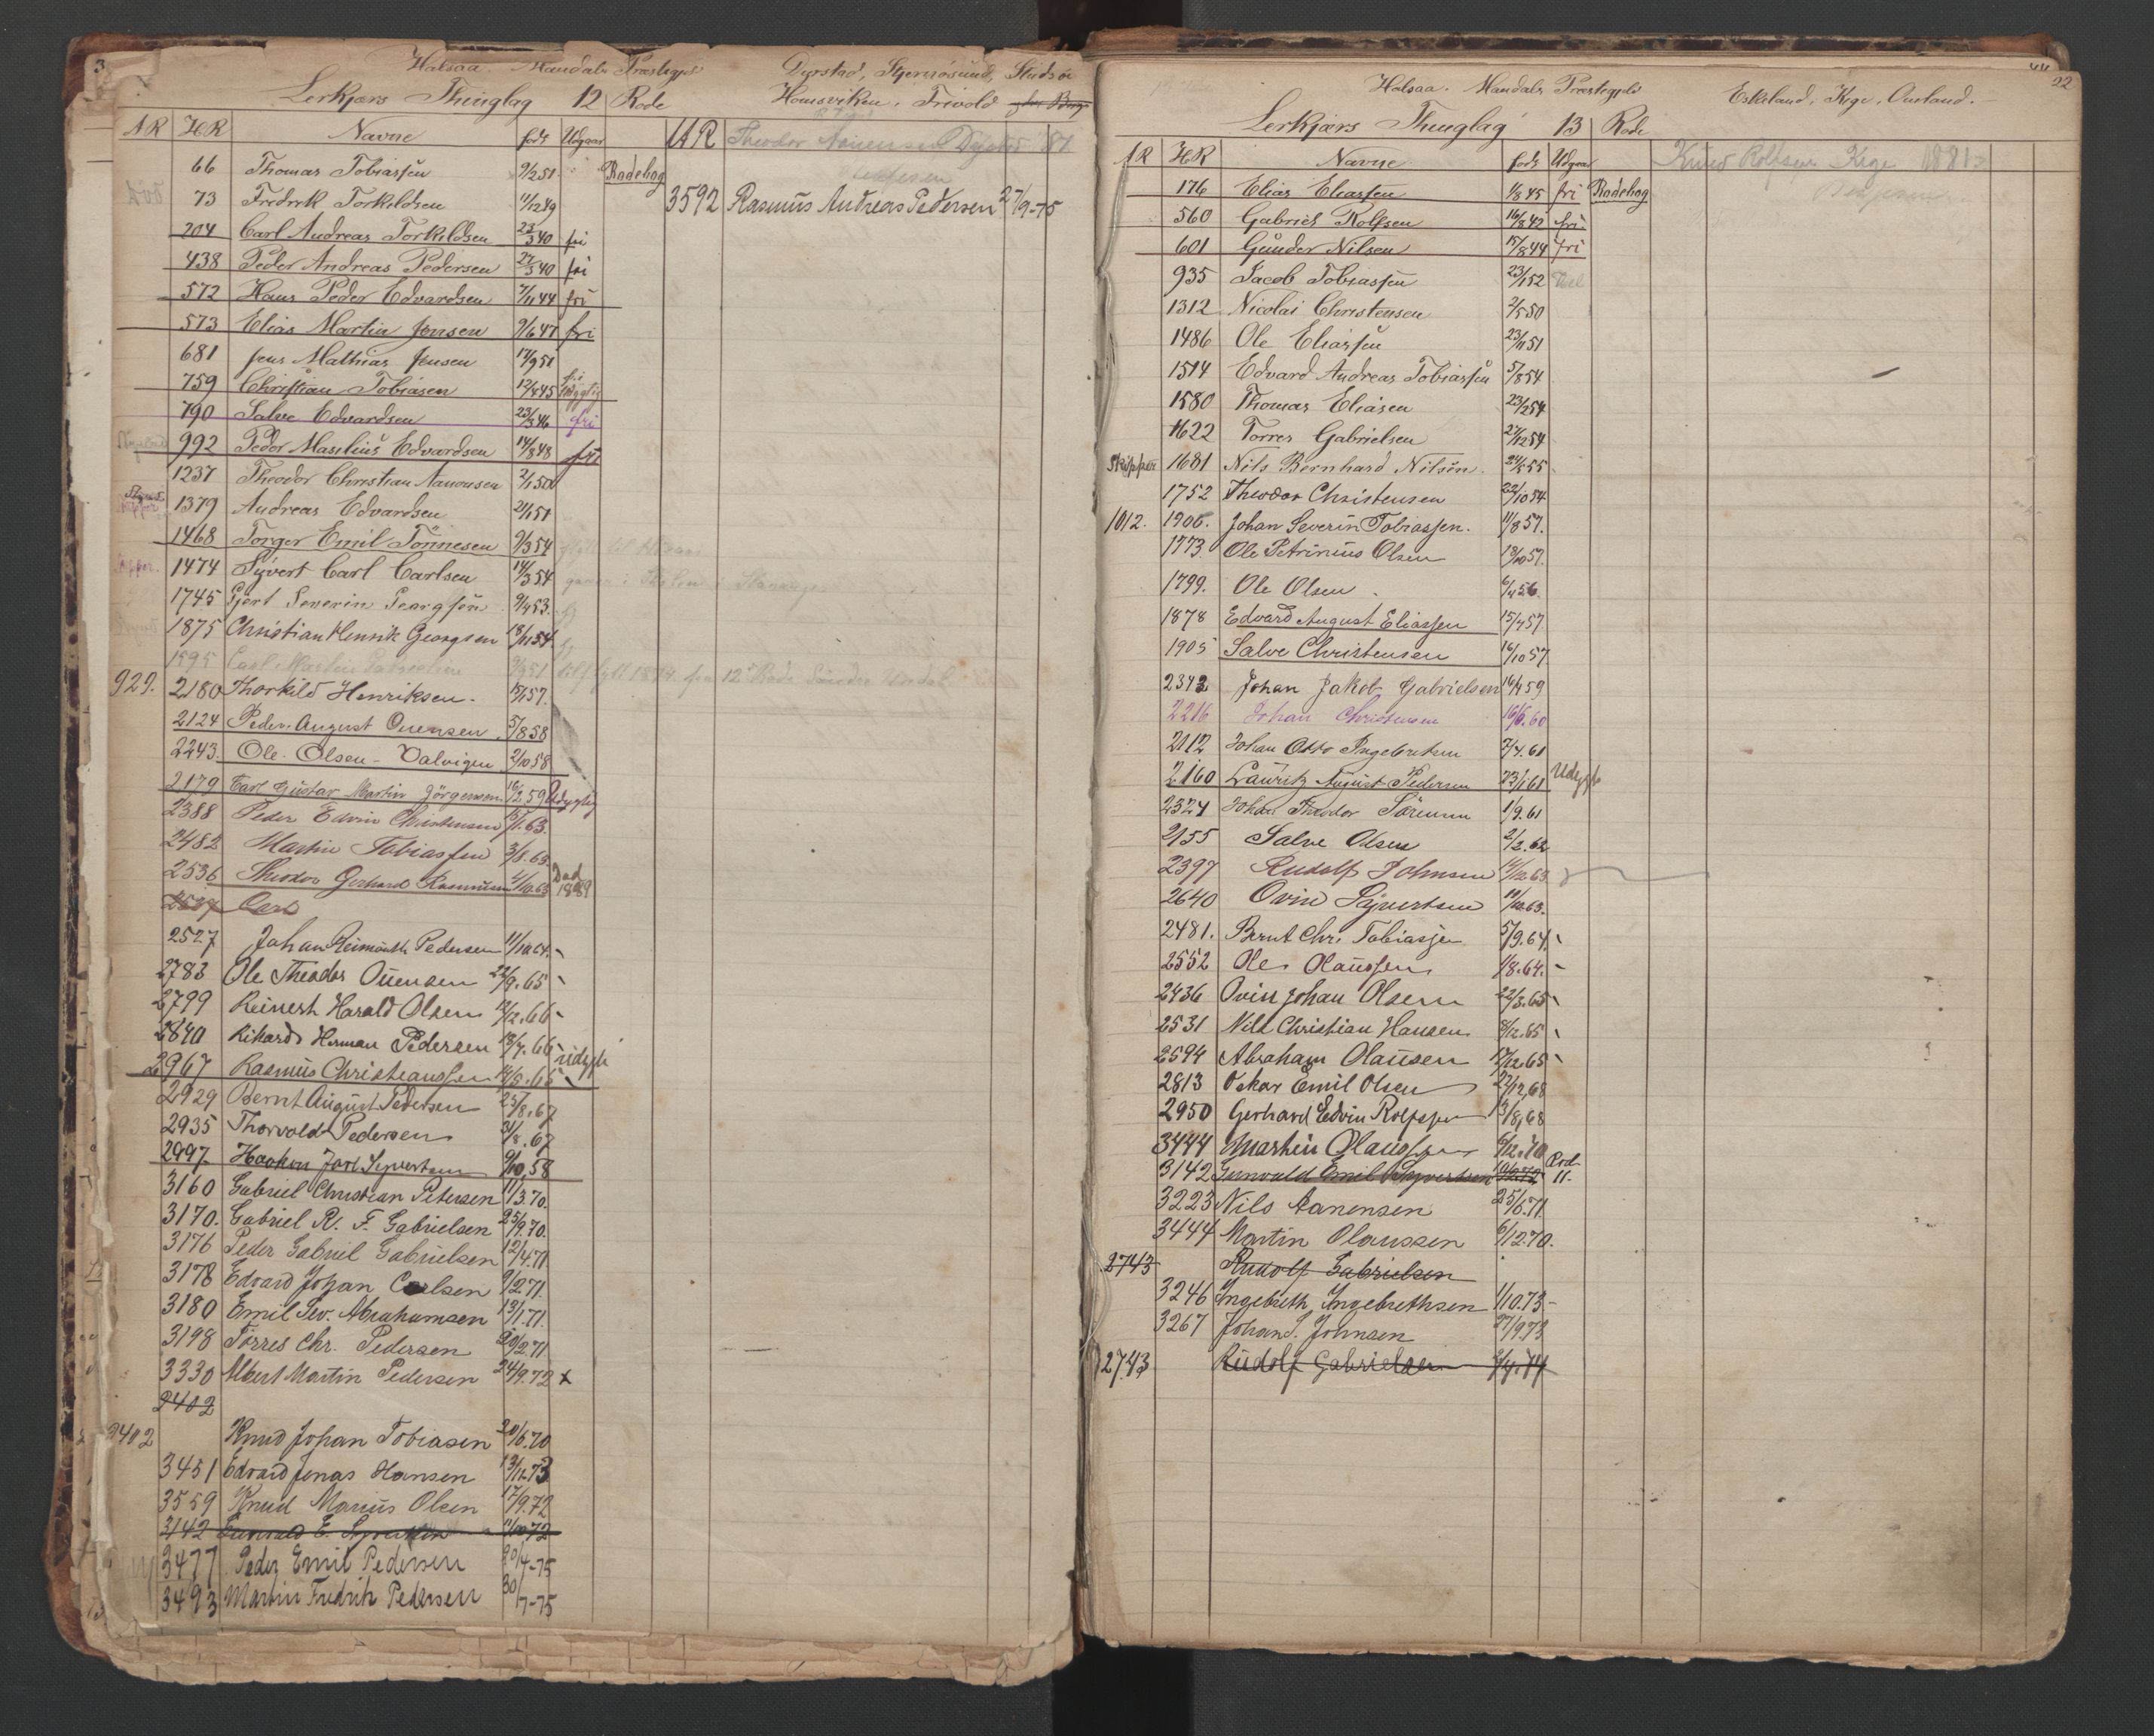 Halsaa. Mandals Præstegjeld Dyrstad, Stjernøsund,
Lerkjærs Thinglag 12 Rode Homsviken, Trivold
AR HR Navne født Udgaar UR Theodor 81
66 Thomas Tobiassen 9/2 51 Rodebog
73 Fredrik Torkildsen 11/12 49 3592 Rasmus Andreas Pedersen 27/9-75
204 Carl Andreas Torkildsen 23/3 40 fri
438 Peder Andreas Pedersen 27/3 40 fri
572 Hans Peder Edvardsen 7/11 44 fri
573 Elias Martin Jensen 9/6 47 fri
681 Jens Mathias Jensen 17/9 51
759 Christian Tobiasen 12/4 45 fri Udygtig
790 Salve Edvardsen 23/3 46 fri
992 Peder Maselius Edvardsen 14/8 48 fri
1237 Theodor Christian Aanonsen 2/1 50
1379 Andreas Edvardsen 21/1 51
1468 Torger Emil Tönnesen 9/3 54
1474 Syvert Carl Carlsen 14/3 54
1745 Gjert Severin Georgsen 9/4 53
1875 Christian Henrik Georgsen 18/11 54
1595 Carl Martin 9/3 51 tilflytt 1874 fra 12te Rode Söndre Undal
929. 2180 Thorkild Henriksen 15/1 57.
2124 Peder August Ouensen 5/8 58
2243. Ole Olsen - Valvigen 2/10 58
2179 Carl Gustav Martin Jörgensen 16/2 59 Udygtig
2388 Peder Edvin Christensen 15/1. 63.
2482 Martin Tobiassen 3/8. 63
2536 Theodor Gerhard Rasmussen 4/10. 63 Död 1889
2537 Carl
2527 Johan Reimonth Pedersen 11/10 64.
2783 Ole Theodor Ouensen 22/9. 65
2799 Reinert Harald Olsen 12/12. 66
2840 Rikard Herman Pedersen 18/7. 66
2967 Rasmus Christianssen 14/5. 66 udygt
2929 Bernt August Pedersen 25/8. 67
2935 Thorvald Pedersen 31/8. 67
2997 Haakon Jarl Syvertsen 9/10. 58
3160 Gabriel Christian Petersen 11/3. 70.
3170. Gabriel R. F. Gabrielsen 25/9. 70.
3176 Peder Gabriel Gabrielsen 12/4. 71
3178 Edvard Johan Carlsen 9/2. 71.
3180 Emil Sev. Abrahamsen 13/1. 71.
3198 Törres Chr. Pedersen 20/2. 71
3330 Albert Martin Pedersen 24/9. 72 x
2402
2402 Knud Johan Tobiasen 20/6. 70
3451 Edvard Jonas Hansen 13/12. 73
3559 Knud Marius Olsen 17/9. 72
3142 Gunvald E. Syvertsen 11/10 72
3477 Peder Emil Pedersen 20/4-75
3493 Martin Fredrik Pedersen 30/7-75
22
Halsaa. Mandals Præstegjeld Eskeland, Kege, Omland.
Lerkjærs Thinglag 13 Rode
AR HR Navne født Udgaar Knud Rolfsen Kege 1881
176 Elias Eliassen 1/8 45 fri Rodebog
560 Gabriel Rolfsen 16/8 42 fri
601 Gunder Nilsen 15/8 44 fri
935 Jacob Tobiassen 23/1 52
1312 Nicolai Christensen 2/5 50
1486 Ole Eliassen 23/11 51
1514 Edvard Andreas Tobiassen 5/8 54
1580 Thomas Eliasen 23/2 54
1622 Torres Gabrielsen 27/12 54
Skipper 1681 Nils Bernhard Nilsen 24/5 55
1752 Theodor Christensen 22/10 54
1012. 1906. Johan Severin Tobiassen. 11/8 57.
1773. Ole Petrinius Olsen 18/10 57.
1799. Ole Olsen 6/4 56.
1878 Edvard August Eliassen 15/4 57
1905 Salve Christensen 16/10 57
2342 Johan Jakob Gabrielsen 16/4 59
2216 Johan Christensen 16/6. 60
2112 Johan Otto Ingebretsen 7/4. 61
2160 Lauritz August Pedersen 23/1 61 Udygt
2324 Johan Theodor Sörensen 1/9. 61
2155 Salve Olsen 2/2. 62
2397 Rudolf Johnsen 14/12 63
2640 Ovin Sijvertsen 11/10. 63.
2481. Bernt Chr. Tobiassen 5/9. 64
2552 Ole Olaussen 1/8. 64.
2436 Ovin Johan Olsen 22/3. 65
2531 Nils Christian Hansen 8/12. 65
2594 Abraham Olausen 17/12. 65
2813 Oskar Emil Olsen 22/12, 68
2950 Gerhard Edvin Rolfsen 13/8, 68
3444 Martin Olaussen 6/12. 70
3142 Gunvald Emil Sijvertsen 11/10 72 Rod. 11.
3223 Nils Aanensen 25/6. 71
3444 Martin Olaussen 6/12 70.
2743 Rudolf Gabrielsen
3246 Ingebreth Ingebrethsen 1/10. 73
3267 Johan S. Johnsen 27/9 73
2743 Rudolf Gabrielsen 3/4. 74